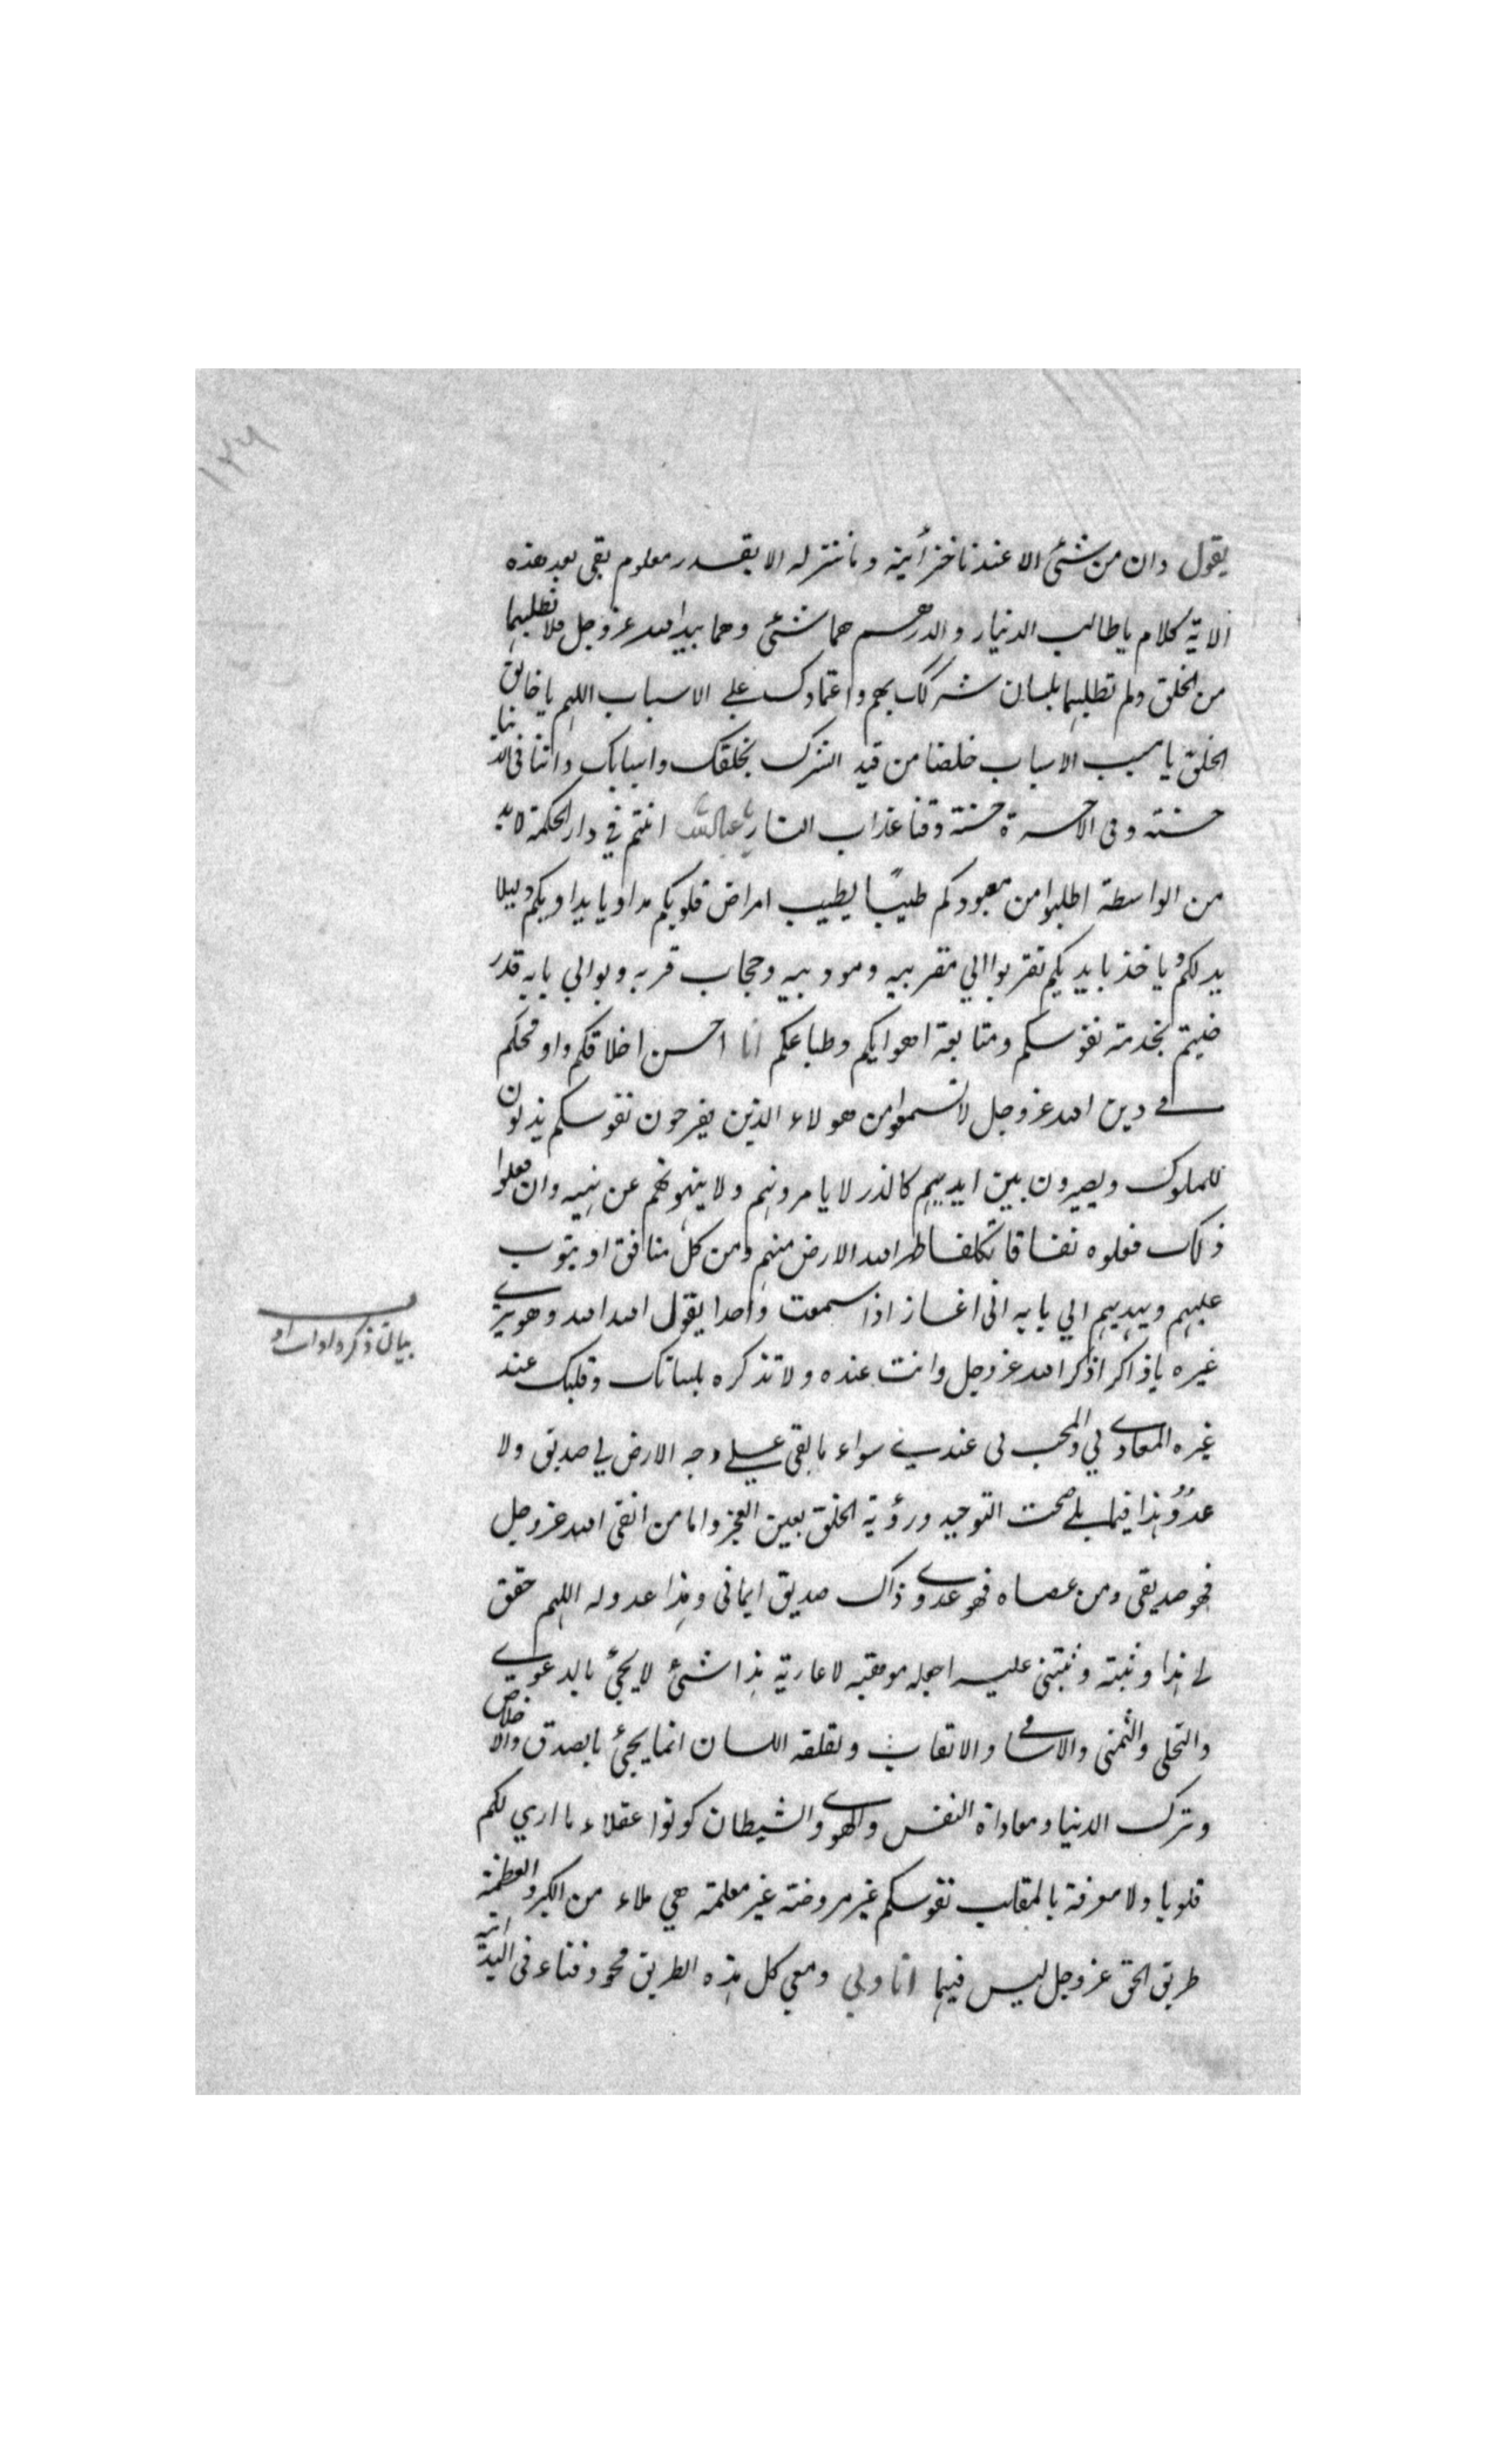 ١٢٦
يقول وان من شئ الا عندنا خزائنه و ما ننزله الا بقدر معلوم بقى بعد هذه
الاية كلام يا طالب الدنيار والدرهم هما شئ وهما بيد الله عزوجل فلا تطلبهما
من الخلق ولم تطلبهما بلسان شركك بهم واعتمادك على الاسباب اللهم يا خالق
الخلق يا مسبب الاسباب خلصنا من قيد الشرك بخلقك واسبابك واتنا فى الدنيا
حسنة وفى الاخرة حسنة وقنا عذاب النار انتم في دار الحكمة لا بد
من الواسطة اطلبوا من معبودكم طبيبًا يطبب امراض قلوبكم مداويا يداويكم دليلا
يدلكم وياخذ بايديكم تقربوا الي مقربيه ومودبيه وحجاب قربه وبوابي بابه قد ر
ضيتم بخدمة نفوسكم ومتابعة اهوايكم وطباعكم انا احسن اخلاقكم واوقحكم
في دين الله عزوجل لا تسمعوا من هولاء الذين يفرحون نفوسكم يذلون
للملوك ويصيرون بين ايديهم كالذر لا يامرونهم ولا ينهونهم عن نهيه وان فعلوا
ذلك فعلوه نفاقا تكلفا طهر الله الارض منهم ومن كل منافق او يتوب
عليهم ويهديهم الي بابه انى اغار اذا سمعت واحدا يقول الله الله وهو يرى
غيره يا ذاكر اذكر الله عزوجل وانت عنده ولا تذكره بلسانك وقلبك عند
غيره المعادي لي والمحب لى عندي سواء ما بقى على وجه الارض لي صديق ولا
عدوٌ هذا فيما يلى صحت التوحيد ورؤية الخلق بعين العجز واما من اتقى الله عزوجل
فهو صديقى ومن عصاه فهو عدوي ذاك صديق ايمانى وهذا عدو له اللهم حقق
لى هذا وثبته وثبتنى عليه اجعله موهبه لا عارية هذا شئ لا يجئ بالدعوي
والتحلى والتمنى والاسامي والالقاب ولقلقه اللسان انما يجئ بالصدق والاخلاص
وترك الدنيا ومعاداة النفس والهوى والشيطان كونوا عقلاء ما ارى لكم
قلوبا ولا معرفة بالمقلب نفوسكم غير مروضة غير معلمة هي ملاء من الكبر والعظمة
طريق الحق عزوجل ليس فيها انا ولي ومعي كل هذه الطريق محو وفناء فى البداية
بيان ذكره